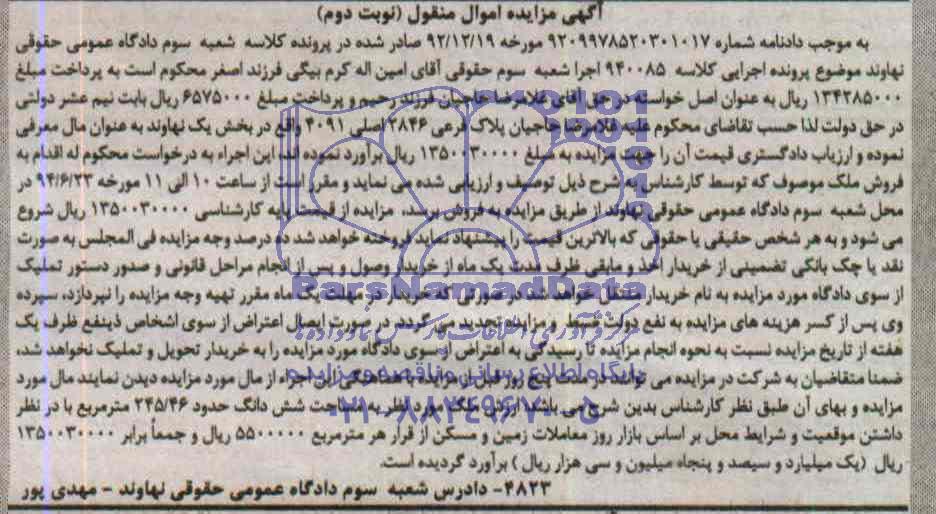 آگهی مزایده اموال منقول (نوبت دوم)
به موجب دادنامه شماره ۹۲۰۹۹۷۸۵۲۰۳۰۱۰۱۷ مورخه ۹۲/۱۲/۱۹ صادر شده در پرونده کلاسه شعبه سوم دادگاه عمومی حقوقی
نهاوند موضوع پرونده اجرایی کلاسه ۹۴۰۰۸۵ اجرا شعبه سوم حقوقی آقای امین اله کرم بیگی فرزند اصغر محکوم است به پرداخت مبلغ
۱۳۴۲۸۵۰۰۰ ریال به عنوان اصل خواسته در حق آقای غلامرضا حاجیان فرزند رحیم و پرداخت مبلغ ۶۵۷۵۰۰۰ ریال بابت نیم عشر دولتی
در حق دولت لذا حسب تقاضای محکوم علیه غلامرضا حاجیان پلاک فرعی ۲۸۴۶ اصلی ۴۰۹۱ واقع در بخش یک نهاوند به عنوان مال معرفی
نموده و ارزیاب دادگستری قیمت آن را جهت مزایده به مبلغ ۱۳۵۰۰۳۰۰۰۰ ریال برآورد نموده اند، این اجراء به درخواست محکوم له اقدام به
فروش ملک موصوف که توسط کارشناس به شرح ذیل توصیف و ارزیابی شده می نماید و مقرر است از ساعت ۱۰ الی ۱۱ مورخه ۹۴/۶/۲۳ در
محل شعبه سوم دادگاه عمومی حقوقی نهاوند از طریق مزایده به فروش برسد، مزایده از قیمت پایه کارشناسی ۱۳۵۰۰۳۰۰۰۰ ریال شروع
می شود و به هر شخص حقیقی یا حقوقی که بالاترین قیمت را پیشنهاد نماید فروخته خواهد شد ده درصد وجه مزایده فی المجلس به صورت
نقد یا چک بانکی تضمینی از خریدار اخذ و مابقی ظرف مدت یک ماه از خریدار وصول و پس از انجام مراحل قانونی و صدور دستور تملیک
از سوی دادگاه مورد مزایده به نام خریدار منتقل خواهد شد در صورتی که خریدار در مهلت یک ماه مقرر تهیه وجه مزایده را نپردازد، سپرده
وی پس از کسر هزینه های مزایده به نفع دولت ضبط و مزایده تجدید می گردد در صورت ایصال اعتراض از سوی اشخاص ذینفع ظرف یک
هفته از تاریخ مزایده نسبت به نحوه انجام مزایده تا رسیدگی به اعتراض از سوی دادگاه مورد مزایده را به خریدار تحویل و تملیک نخواهد شد،
ضمنا متقاضیان به شرکت در مزایده می توانند در مدت پنج روز قبل از مزایده با هماهنگی این اجراء از مال مورد مزایده دیدن نمایند مال مورد
مزایده و بهای آن طبق نظر کارشناس بدین شرح می باشد: ارزش ملک مورد نظر به مساحت شش دانگ حدود ۲۴۵/۴۶ مترمربع با در نظر
داشتن موقعیت و شرایط محل بر اساس بازار روز معاملات زمین و مسکن از قرار هر مترمربع ۵۵۰۰۰۰۰ ریال و جمعاً برابر ۱۳۵۰۰۳۰۰۰۰
ریال (یک میلیارد و سیصد و پنجاه میلیون و سی هزار ریال) برآورد گردیده است.
۴۸۲۳- دادرس شعبه سوم دادگاه عمومی حقوقی نهاوند - مهدی پور
ParsNamadData
پایگاه اطلاع رسانی مناقصه و مزایده
۰۲۱-۸۸۳۴۹۶۷۰-۵